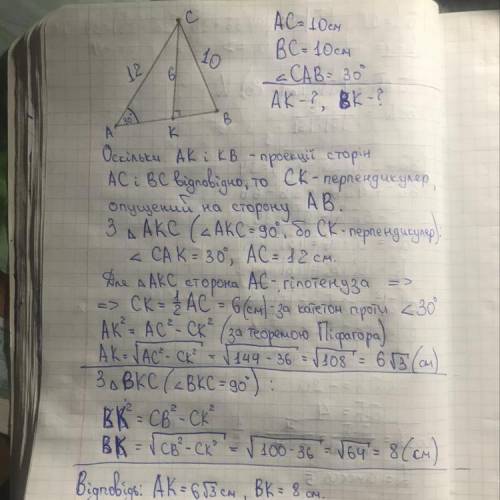 C
12
6
10
30°
A
K
B
AC = 10см
BC = 10см
∠CAB = 30°
AK - ?, BK - ?
Оскільки AK і KB - проекції сторін
AC і BC відповідно, то CK - перпендикуляр,
опущений на сторону AB.
З △AKC (∠AKC = 90°, бо CK - перпендикуляр):
∠CAK = 30°, AC = 12 см.
Для △AKC сторона AC - гіпотенуза =>
=> CK = ½ AC = 6 (см) - за катетом проти ∠30°
AK² = AC² - CK² (за теоремою Піфагора)
AK = √AC² - CK² = √144 - 36 = √108 = 6√3 (см)
З △BKC (∠BKC = 90°):
BK² = CB² - CK²
BK = √CB² - CK² = √100 - 36 = √64 = 8 (см)
Відповідь: AK = 6√3 см, BK = 8 см.